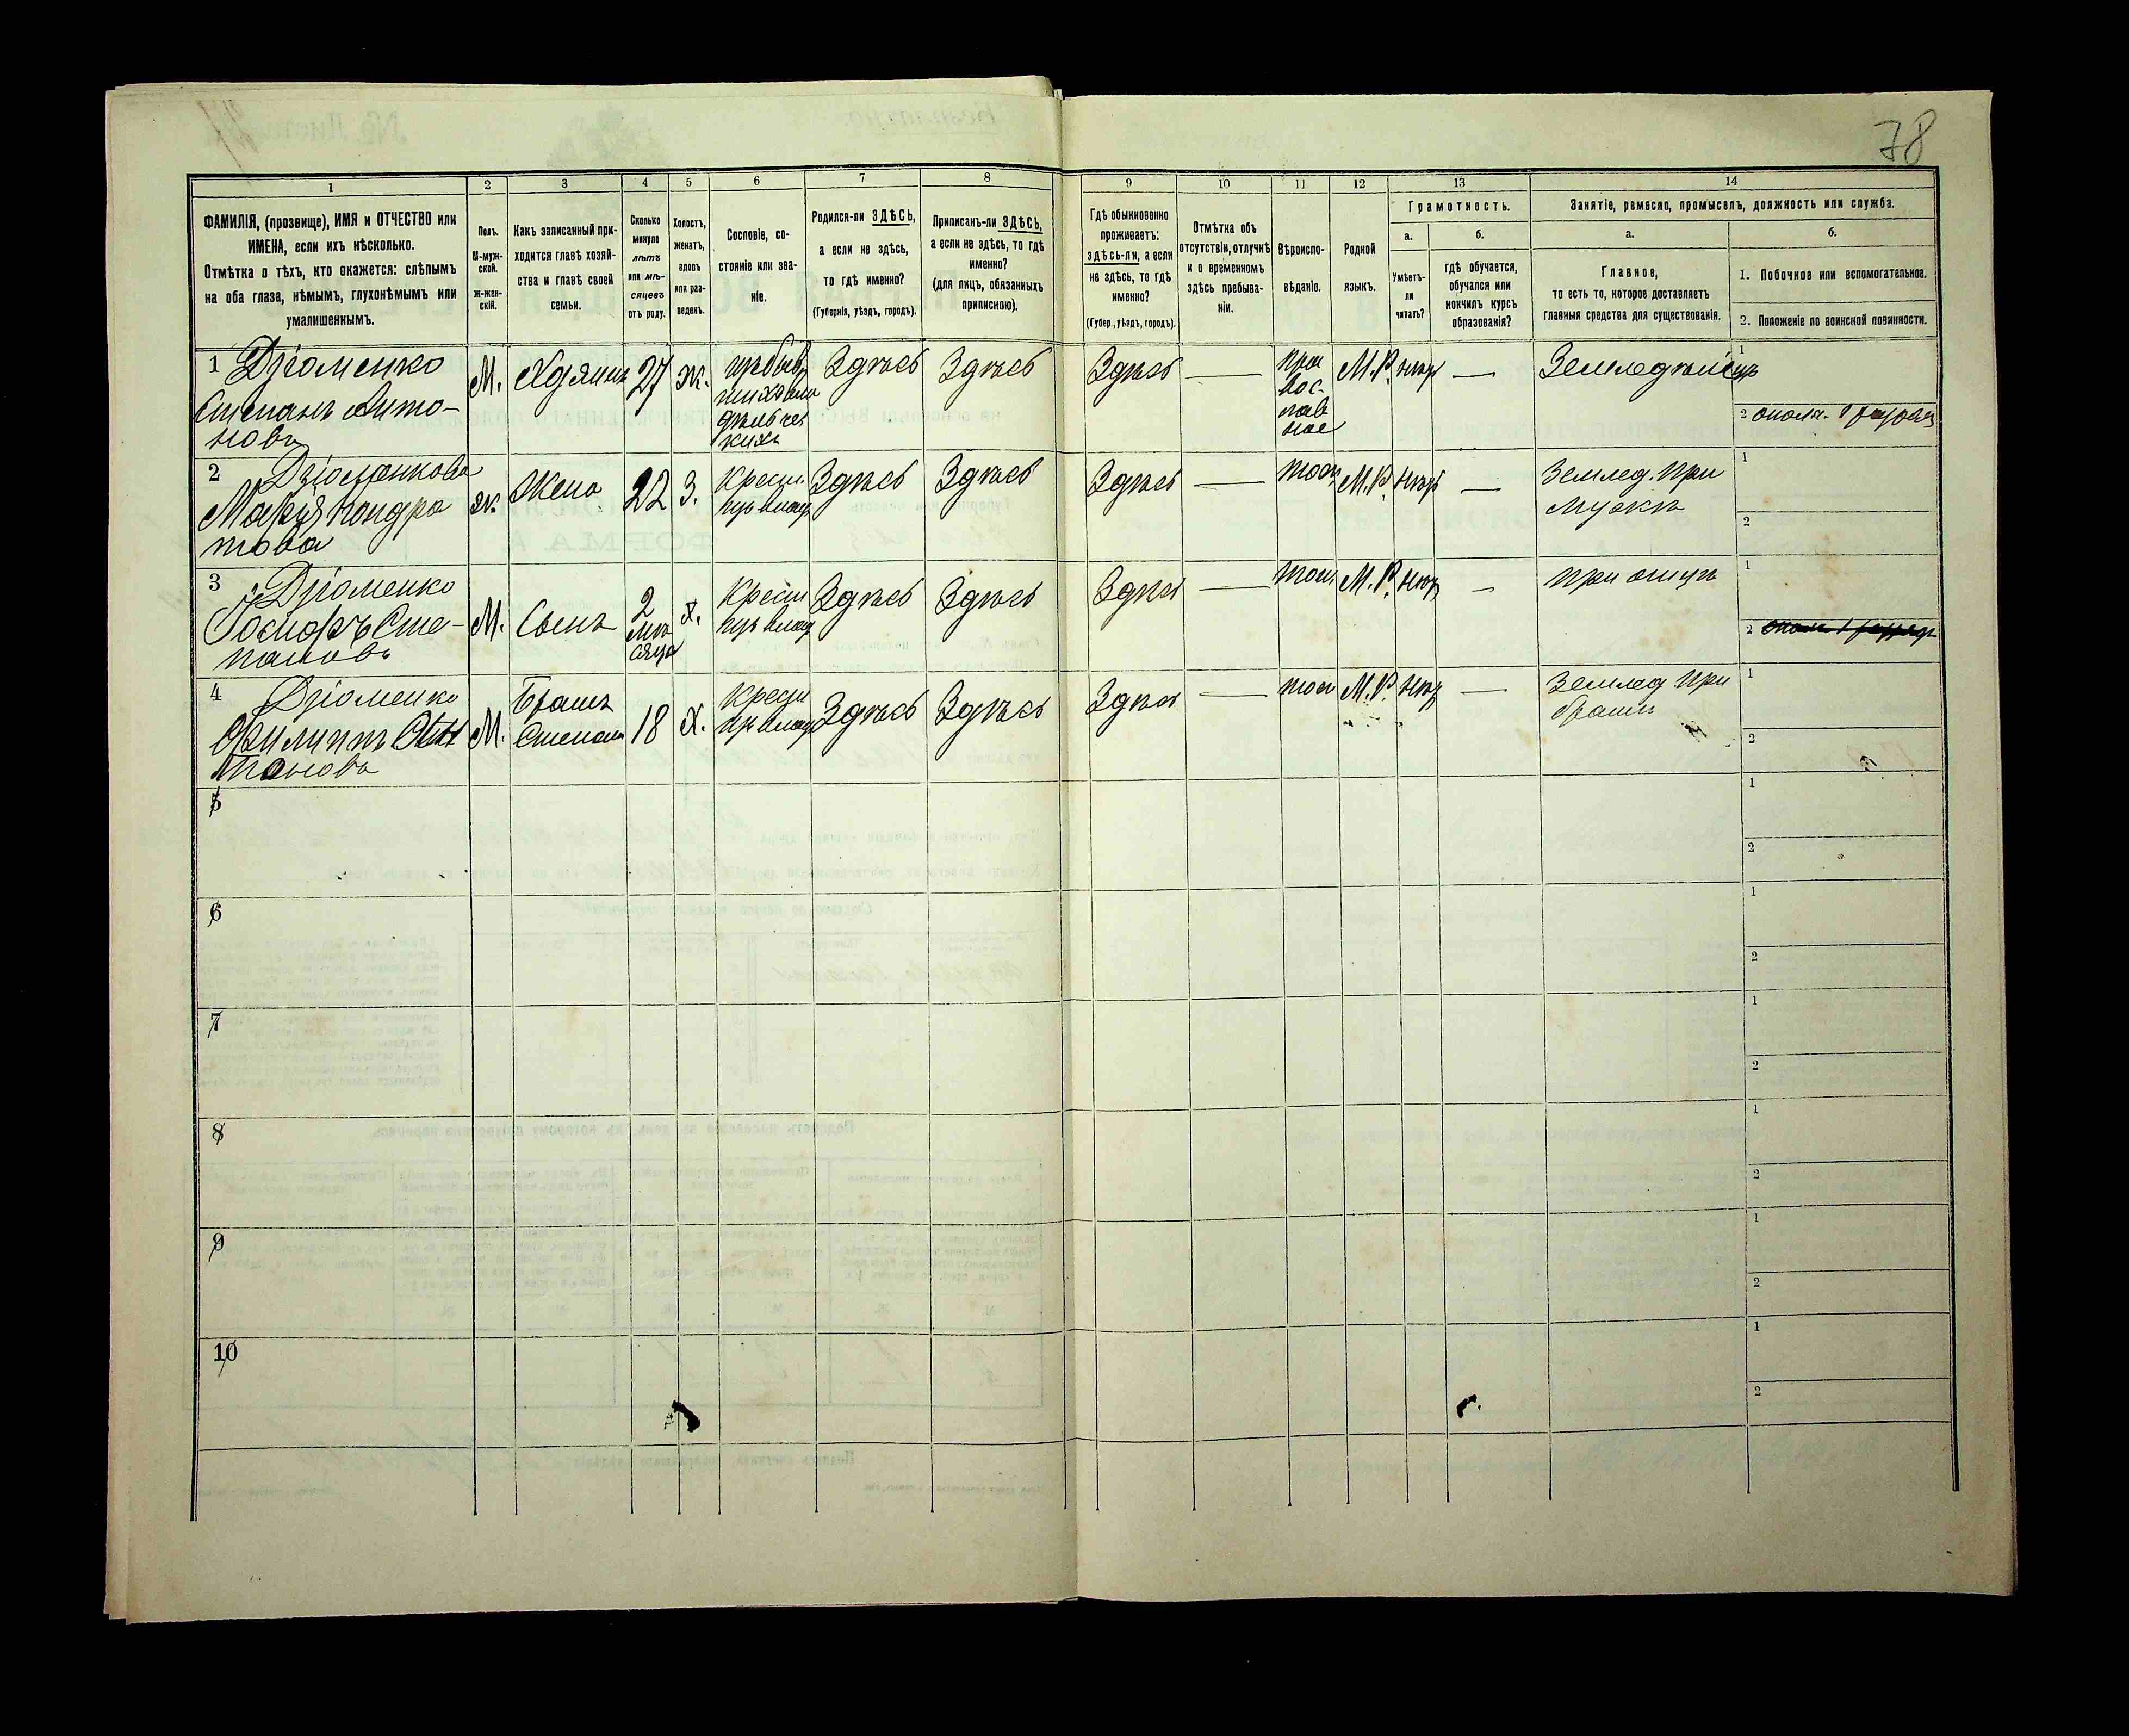 78
1
2
3
4
5
6
7
8
9
10
11
12
13
14
ФАМИЛІЯ, (прозвище), ИМЯ и ОТЧЕСТВО или
ИМЕНА, если ихъ нѣсколько.
Отмѣтка о тѣхъ, кто окажется: слѣпымъ
на оба глаза, нѣмымъ, глухонѣмымъ или
умалишеннымъ.
Полъ.
М-муж-
ской.
ж-жен-
скій.
Какъ записанный при-
ходится главѣ хозяй-
ства и главѣ своей
семьи.
Сколько
минуло
лѣтъ
или мѣ-
сяцевъ
отъ роду.
Холостъ,
женатъ,
вдовъ
или раз-
веденъ.
Сословіе, со-
стояніе или зва-
ніе.
Родился-ли ЗДѢСЬ,
а если не здѣсь,
то гдѣ именно?
(Губернія, уѣздъ, городъ).
Приписанъ-ли ЗДѢСЬ,
а если не здѣсь, то гдѣ
именно?
(для лицъ, обязанныхъ
припискою).
Гдѣ обыкновенно
проживаетъ:
здѣсь-ли, а если
не здѣсь, то гдѣ
именно?
(Губер., уѣздъ, городъ).
Отмѣтка объ
отсутствіи, отлучкѣ
и о временномъ
здѣсь пребыва-
ніи.
Вѣроиспо-
вѣданіе.
Родной
языкъ.
Грамотность.
а.
Умѣетъ-
ли
читать?
б.
гдѣ обучается,
обучался или
кончилъ курсъ
образованія?
Занятіе, ремесло, промыселъ, должность или служба.
а.
Главное,
то есть то, которое доставляетъ
главныя средства для существованія.
б.
1. Побочное или вспомогательное.
2. Положеніе по воинской повинности.
1 Дзюменко
Степанъ Анто-
новъ
М.
Хозяинъ
27
ж.
Здѣсь
Здѣсь
Здѣсь
—
пра
вос-
лав
ное
М.Р.
нѣтъ
—
Земледѣлецъ
1
2 ополч. 1 разряд
2 Дзюменкова
Марія Кондра
това
ж.
Жена
22
З.
Крест.
Здѣсь
Здѣсь
Здѣсь
—
тоже
М.Р.
нѣтъ
—
Землед. при
мужѣ
1
2
3 Дзюменко
Іосифъ Сте-
пановъ
М.
Сынъ
2
мѣ
сяца
х.
Крест
Здѣсь
Здѣсь
Здѣсь
—
тоже
М.Р.
нѣтъ
—
при отцѣ
1
2
4 Дзюменко
Филиппъ Ан
тоновъ
М.
Братъ
Степана
18
х.
Крест
Здѣсь
Здѣсь
Здѣсь
—
тоже
М.Р.
нѣтъ
—
Землед при
братѣ
1
2
5
1
2
6
1
2
7
1
2
8
1
2
9
1
2
10
1
2